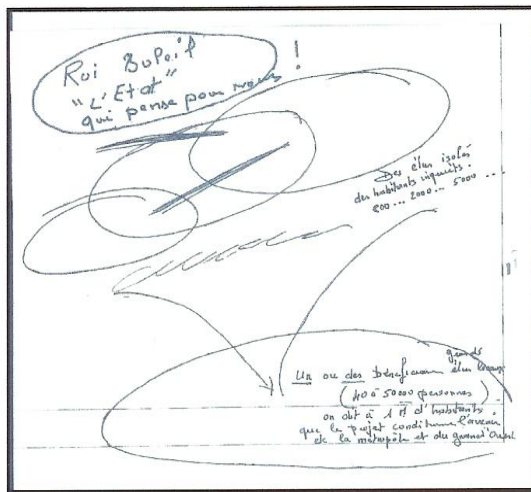 Roi Soleil !
"L'Etat"
qui pense pour nous
Des élus isolés
des habitants inquiets.
200 ... 2000 ... 5000 ...
grands
Un ou des élus locaux
(40 à 50000 personnes)
on dit à 1 M d'habitants
que le projet conditionne l'avenir
de la métropole et du grand Ouest